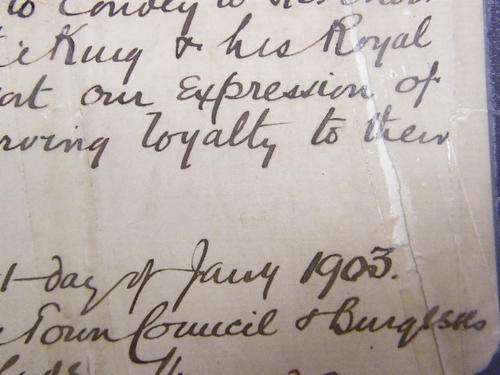 to convey to
King & his Royal
our expression of
loyalty to their
day of Jany 1903.
Town Council & Burgesses